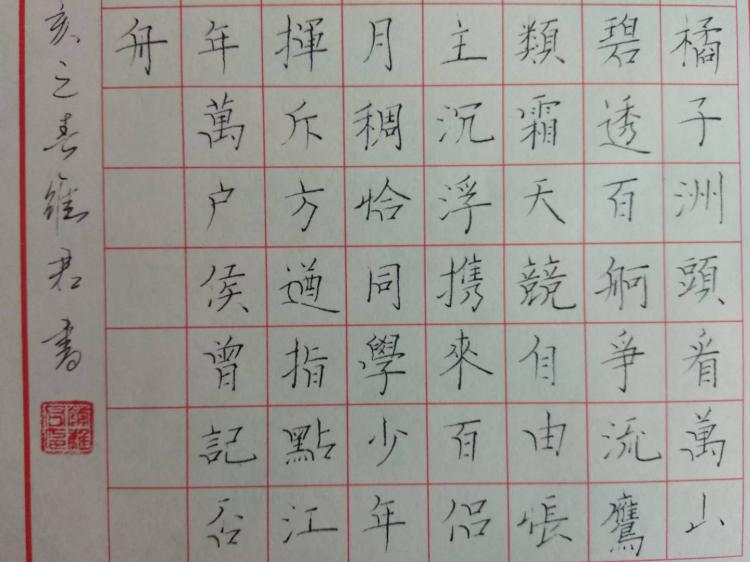 橘子洲頭看萬山
碧透百舸爭流鷹
類霜天競自由悵
主沉浮携來百侶
月稠恰同學少年
揮斥方遒指點江
年萬户侯曾記否
舟
亥之春維君書